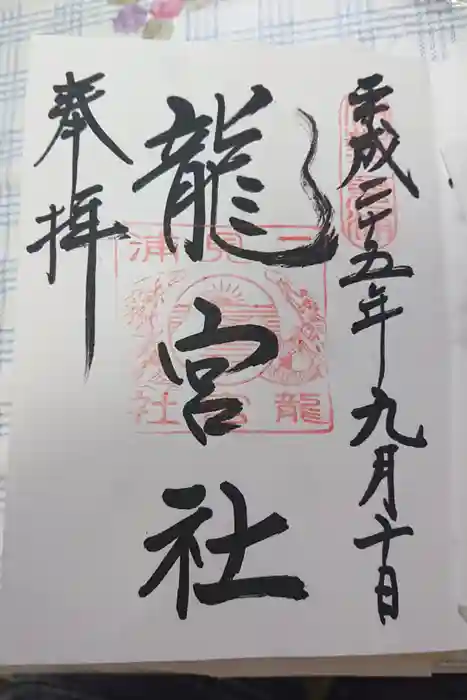 平成二十五年九月十日
龍宮社
二見浦
龍宮社
奉拝